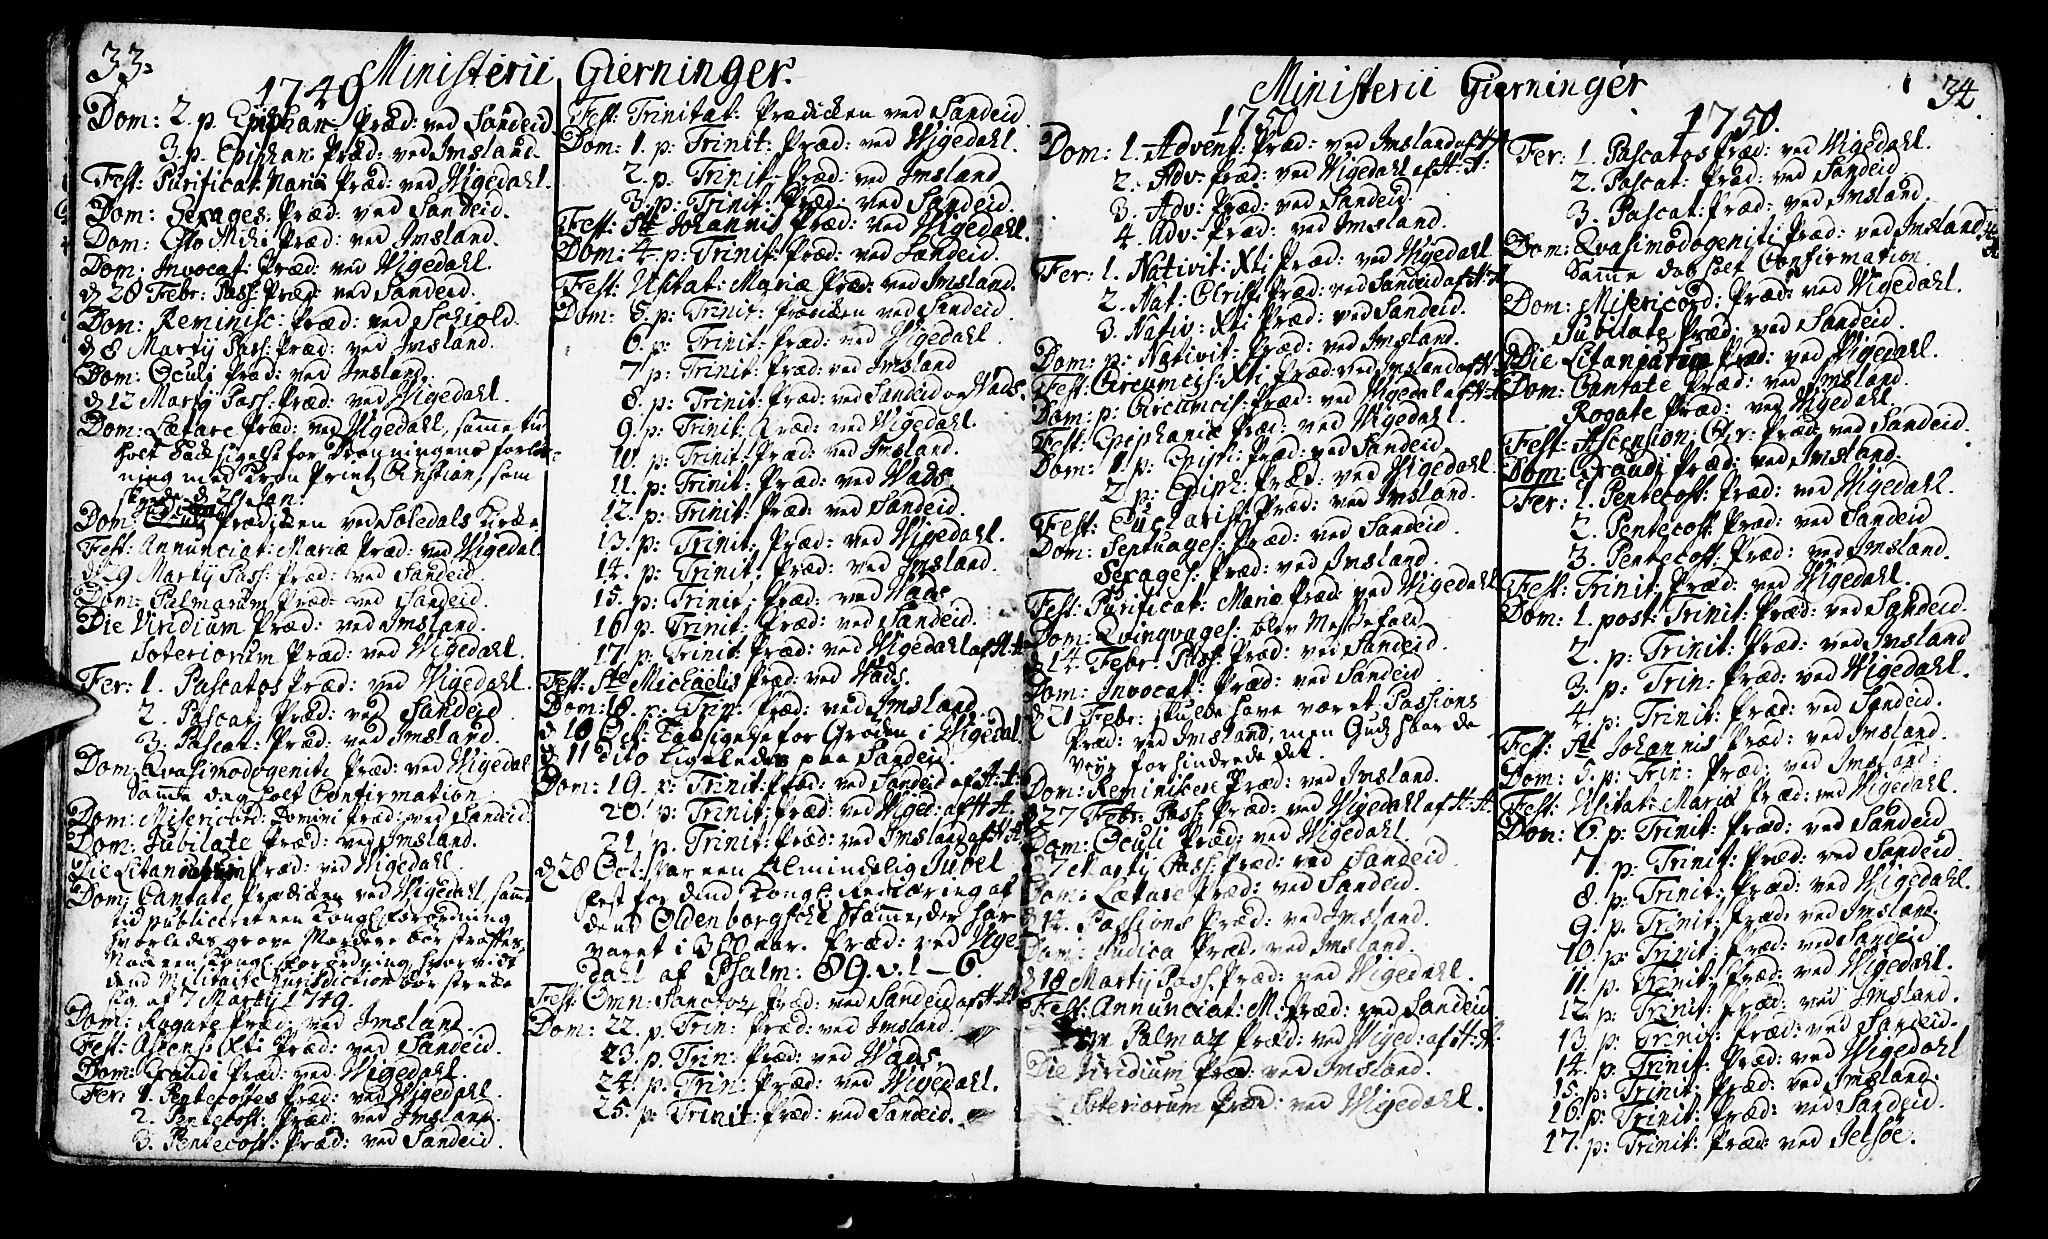 33.
Ministerii Gierninger.
1749
Dom: 2. p. Epiphan. Præd: ved Sandeid
3. p. Epiphan: Præd: ved Imsland.
Fest: Purificat: Mariæ Præd: ved Vigedahl.
Dom: Sexages: Præd: ved Sandeid.
Dom: Esto Mihi Præd: ved Imsland.
Dom: Invocat: Præd: ved Vigedahl.
d 28 Febr: Pass: Præd: ved Sandeid.
Dom: Reminisc: Præd: ved Schiold.
d 8 Martij Pass: Præd: ved Imsland.
Dom: Oculi Præd: ved Imsland.
d 12 Martij Pass: Præd: ved Vigedahl.
Dom: Lætare Præd: ved Vigedahl, samme tid
holt Tacksigelse for Dronningens forløs-
ning med Cron Printz Christian, som
skeede d 29 Jan.
Dom: Prædicken ved Soledals Kirke.
Fest: Annunciat: Mariæ Præd: ved Vigedal.
d 29 Martij Pass: Præd: ved Sandeid.
Dom: Palmarum Præd: ved Sandeid.
Die Viridium Præd: ved Imsland.
Soteriorum Præd: ved Vigedahl.
Fer: 1. Pascatos Præd: ved Vigedahl.
2. Pascat: Præd: ved Sandeid.
3. Pascat: Præd: ved Imsland.
Dom: Qvasimodogeniti Præd: ved Vigedal
Samme dag holt Confirmation.
Dom: Misericord: Domini Præd: ved Sandeid.
Dom: Jubilate Præd: ved Imsland.
Die Litan Præd: ved Vigedahl.
Dom: Cantate Prædicken ved Vigedahl, samme
tid publiceret een Kongl: Forordning
hvorledes grove Mordere bør straffes.
Nok een Kongl: Forordning hvorvidt
dend Militaire Jurisdiction bør strecke
sig af 7 Martij 1749.
Dom: Rogate Præd: ved Imsland.
Fest: Ascens: Xti Præd: ved Sandeid.
Dom: Exaudi Præd: ved Vigedahl.
Fer: 1. Pentecostes Præd: ved Vigedahl.
2. Pentecost: Præd: ved Imsland.
3. Pentecost: Præd: ved Sandeid.
Fest: Trinitat: Prædicken ved Sandeid
Dom: 1. p: Trinit: Præd: ved Vigedahl.
2. p: Trinit: Præd: ved Imsland
3. p: Trinit: Præd: ved Sandeid.
Fest: Sti Johannis Præd: ved Vigedahl.
Dom: 4. p: Trinit: Præd: ved Sandeid.
Fest: Visitat: Mariæ Præd: ved Imsland.
Dom: 5. p: Trinit: Prædicken ved Sandeid.
6. p: Trinit: Præd: ved Vigedahl.
7. p: Trinit: Præd: ved Imsland
8. p: Trinit: Præd: ved Sandeid og Vads.
9. p: Trinit: Præd: ved Vigedahl
10. p: Trinit: Præd: ved Imsland.
11. p: Trinit: Præd: ved Vads.
12. p: Trinit: Præd: ved Sandeid.
13. p: Trinit: Præd: ved Vigedahl.
14. p: Trinit: Præd: ved Imsland.
15. p: Trinit: Præd: ved Vads
16. p. Trinit: Præd: ved Sandeid.
17. p: Trinit: Præd: ved Vigedahl af H: A:
Fest: Ste Michaelis Præd: ved Vads.
Dom: 18. p: Trin: Præd: ved Imsland.
d 10 Oct: Tacksigelse for Grøden i Vigedal.
d 11 dito ligeledes paa Sandeid.
Dom: 19. p: Trinit: Præd: ved Sandeid af H: A:
20. p: Trinit: Præd: ved Viged: af H: A
21. p. Trinit: Præd: ved Imsland af H: A:
d 28 Oct: var een Almindelig Jubel
fest for dend Kongl: Regiering af
dend Oldenborgsche Stamme, der har
varet i 300 aar. Præd: ved Vige
dahl af Psalm: 89. v. 1–6.
Fest: Omn: Sanctor: Præd: ved Sandeid af H: A:
Dom: 22. p. Trin: Præd: ved Imsland.
23. p. Trin: Præd: ved Vads.
24. p. Trin: Præd: ved Vigedahl.
25. p: Trinit: Præd: ved Sandeid.
34.
Ministerii Gierninger
1750
Dom: 1. Advent: Præd: ved Imsland af H: A
2. Adv: Præd: ved Vigedahl af H: A:
3. Adv: Præd: ved Sandeid.
4. Adv: Præd: ved Imsland.
Fer: 1. Nativit: Xti Præd: ved Vigedahl
2. Nat: Christi Præd: ved Sandeid af H: A
3. Nativ: Xti Præd: ved Sandeid.
Dom: p: Nativit: Præd: ved Imsland.
Fest: Circumcis: Xti Præd: ved Imsland af H: A:
Dom: p: Circumcis: Præd: ved Vigedal af H: A:
Fest: Epiphaniæ Præd: ved Vigedahl.
Dom: 1. p: Epiph: Præd: ved Sandeid
2. p: Epiph: Præd: ved Vigedahl.
Fest: Eucharist: Præd: ved Imsland.
Dom: Septuages: Præd: ved Sandeid
Sexages: Præd: ved Imsland.
Fest: Purificat: Mariæ Præd: ved Vigedahl
Dom: Qvinqvages: blev Messefald
d 14. Febr: Pass: Præd: ved Sandeid.
Dom: Invocat: Præd: ved Sandeid
d 21 Febr: skulde have været Passions
Præd: ved Imsland, men Guds haarde
Veyr forhindrede det.
Dom: Reminiscere Præd: ved Imsland.
d 27 Febr: Pass: Præd: ved Vigedahl af H: A:
Dom: Oculi Præd: ved Vigedahl
d 7 Martij Pass: Præd: ved Sandeid
Dom: Lætare Præd: ved Sandeid.
d 14. Passions Præd: ved Imsland.
Dom: Judica Præd: ved Imsland.
d 18 Martij Pass: Præd: ved Vigedahl.
Fest: Annunciat: M: Præd: ved Sandeid
Palmar Præd: ved Viged: af H: A:
Die Viridium Præd: ved Imsland.
Soteriorum Præd: ved Vigedahl.
1750.
Fer: 1. Pascatos Præd: ved Vigedahl.
2. Pascat: Præd: ved Sandeid
3. Pascat: Præd: ved Imsland.
Dom: Qvasimodogeniti Præd: ved Imsland H: A
Samme dag holt Confirmation.
Dom: Misericord: Præd: ved Vigedahl.
Jubilate Præd: ved Sandeid.
Die Litan Præd: ved Vigedahl.
Dom: Cantate Præd: ved Imsland.
Rogate Præd: ved Vigedahl.
Fest: Ascension: Chr: Præd: ved Sandeid.
Dom: Exaudi Præd: ved Imsland.
Fer: 1. Pentecost: Præd: ved Vigedahl.
2. Pentecost: Præd: ved Sandeid
3. Pentecost: Præd: ved Imsland.
Fest: Trinit: Præd: ved Vigedahl.
Dom: 1. post: Trinit: Præd: ved Sandeid.
2. p: Trinit: Præd: ved Imsland
3. p: Trin: Præd: ved Vigedahl.
4. p: Trinit: Præd: ved Sandeid.
Fest: St Johannis Præd: ved Imsland.
Dom: 5. p: Trin: Præd: ved Imsland.
Fest: Visitat: Mariæ Præd: ved Vigedahl.
Dom: 6. p: Trinit: Præd: ved Sandeid
7. p: Trinit: Præd: ved Sandeid.
8. p: Trinit: Præd: ved Vigedahl.
9. p: Trinit: Præd: ved Imsland.
10. p: Trinit: Præd: ved Sandeid
11. p. Trinit: Præd: ved Vigedahl.
12. p: Trinit: Præd: ved Imsland.
13. p: Trinit: Præd: ved Sandeid.
14. p: Trinit: Præd: ved Vigedahl
15. p: Trinit: Præd: ved Imsland.
16. p: Trinit: Præd: ved Sandeid.
17. p: Trinit: Præd: ved Jelsøe.